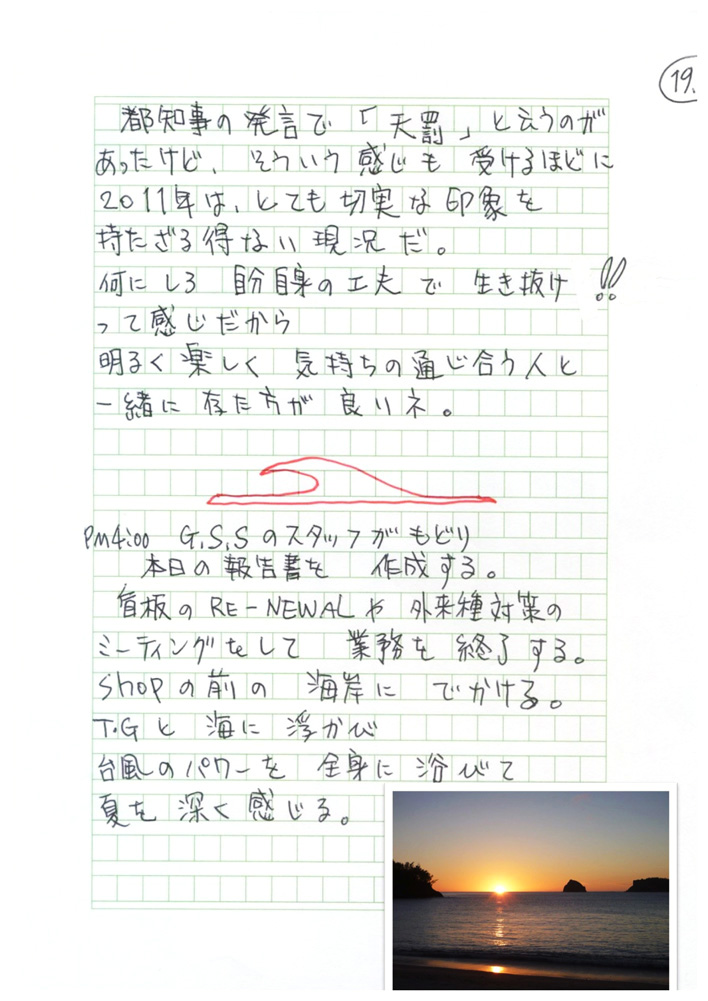 19.
都知事の発言で「天罰」と云うのが
あったけど、そういう感じも受けるほどに
2011年は、とても切実な印象を
持たざる得ない現況だ。
何にしろ 自分自身の工夫で 生き抜け!!
って感じだから
明るく楽しく 気持ちの通じ合う人と
一緒に存た方が良いネ。
PM4:00 G.S.Sのスタッフがもどり
本日の報告書を 作成する。
看板のRE-NEWALや外来種対策の
ミーティングをして 業務を終了する。
shopの前の 海岸に でかける。
T.Gと 海に浮かび
台風のパワーを 全身に浴びて
夏を深く感じる。